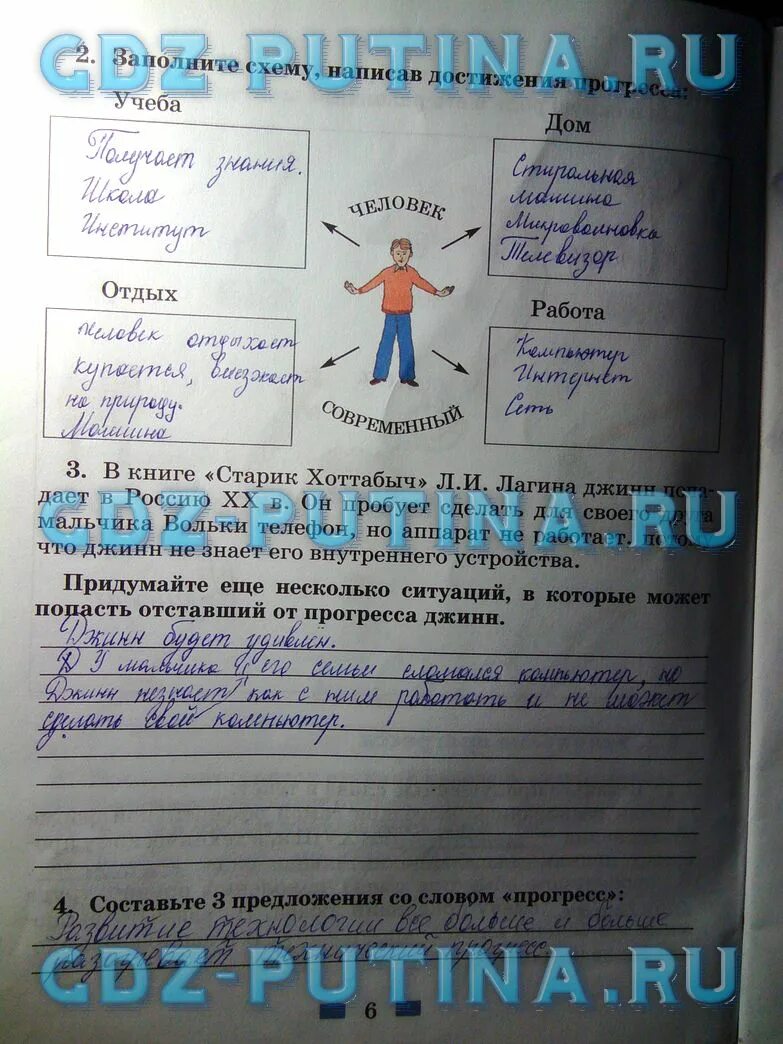 GDZ-PUTINA.RU
2. Заполните схему, написав достижения прогресса:
Учеба
Получает знания.
Школа
Институт
Дом
Стиральная
машина
Микроволновка
Телевизор
ЧЕЛОВЕК
СОВРЕМЕННЫЙ
Отдых
Человек отдыхает
купается, выезжает
на природу.
Машина
Работа
Компьютер
Интернет
Сеть
3. В книге «Старик Хоттабыч» Л.И. Лагина джинн попа-
дает в Россию XX в. Он пробует сделать для своего друга
мальчика Вольки телефон, но аппарат не работает, потому
что джинн не знает его внутреннего устройства.
GDZ-PUTINA.RU
Придумайте еще несколько ситуаций, в которые может
попасть отставший от прогресса джинн.
Джинн будет удивлён.
У мальчика и его семьи сломался компьютер, но
Джинн незнает как с ним работать и не может
сделать свой компьютер.
4. Составьте 3 предложения со словом «прогресс»:
Развитие технологии все больше и больше
технический прогресс.
GDZ-PUTINA.RU
6